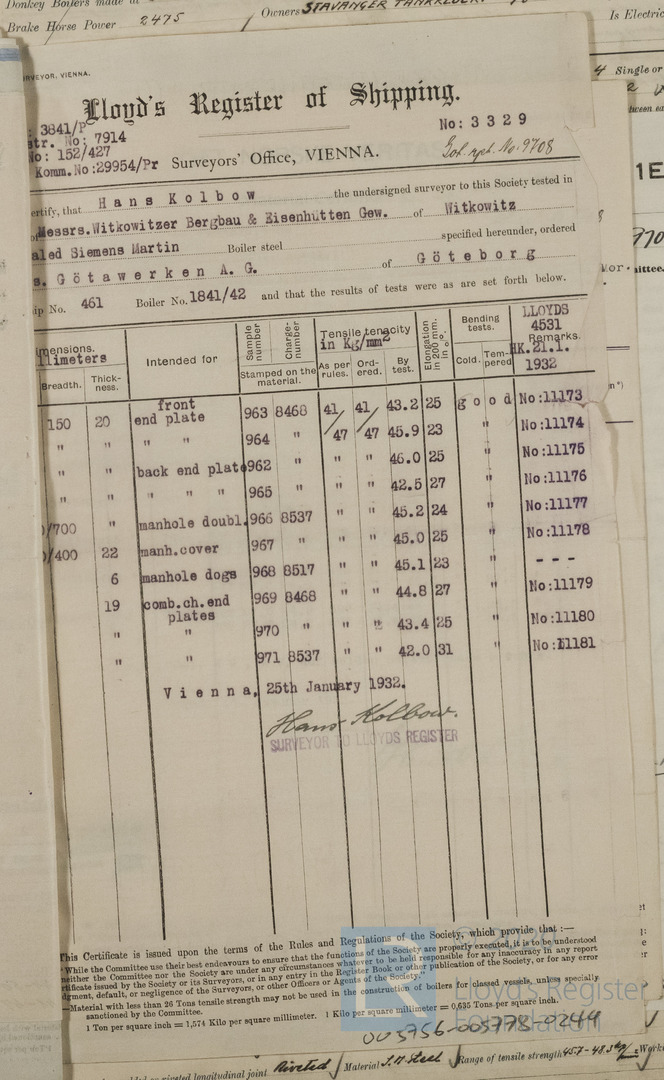 Donkey Boilers made
Brake Horse Power 2475
Owners STAVANGER
Is Electric
SURVEYOR, VIENNA.
Single or
Lloyd's Register of Shipping.
3841/P
No: 7914
No: 152/427
Komm.No:29954/Pr
No: 3329
Surveyors' Office, VIENNA.
Got. rpt. No. 9708
certify, that Hans Kolbow the undersigned surveyor to this Society tested in
Messrs.Witkowitzer Bergbau & Eisenhütten Gew. of Witkowitz
aled Siemens Martin Boiler steel specified hereunder, ordered
s. Götawerken A. G. of Göteborg
ip No. 461 Boiler No. 1841/42 and that the results of tests were as are set forth below.
Dimensions.
Millimeters
Breadth. Thickness.
Intended for
Sample number
Charge-number
Stamped on the material.
Tensile tenacity in Kg/mm2
As per rules. Ordered. By test.
Elongation in 200 mm. in %.
Bending tests.
Cold. Tempered
LLOYDS
4531
Remarks.
HK.21.1.
1932
150 20 front end plate 963 8468 41/47 41/47 43.2 25 good No:11173
" " " " 964 " 45.9 23 " No:11174
" " back end plate 962 " " 46.0 25 " No:11175
" " " " " 965 " " " 42.5 27 " No:11176
/700 " manhole doubl. 966 8537 " " 45.2 24 " No:11177
/400 22 manh.cover 967 " " " 45.0 25 " No:11178
6 manhole dogs 968 8517 " " 45.1 23 " ---
19 comb.ch.end plates 969 8468 " " 44.8 27 " No:11179
" " 970 " " " 43.4 25 " No:11180
" " 971 8537 " " 42.0 31 " No:11181
Vienna, 25th January 1932.
Hans Kolbow.
SURVEYOR TO LLOYDS REGISTER
This Certificate is issued upon the terms of the Rules and Regulations of the Society, which provide that :—
"While the Committee use their best endeavours to ensure that the functions of the Society are properly executed, it is to be understood
neither the Committee nor the Society are under any circumstances whatever to be held responsible for any inaccuracy in any report
certificate issued by the Society or its Surveyors, or in any entry in the Register Book or other publication of the Society, or for any error
judgment, default, or negligence of the Surveyors, or other Officers or Agents of the Society."
—Material with less than 26 Tons tensile strength may not be used in the construction of boilers for classed vessels, unless specially
sanctioned by the Committee.
1 Ton per square inch = 1,574 Kilo per square millimeter. 1 Kilo per square millimetre = 0,635 Tons per square inch.
Lloyd's Register
Foundation
003756-003778-0244
riveted longitudinal joint Riveted Material S.M Steel Range of tensile strength 45.7-48.3